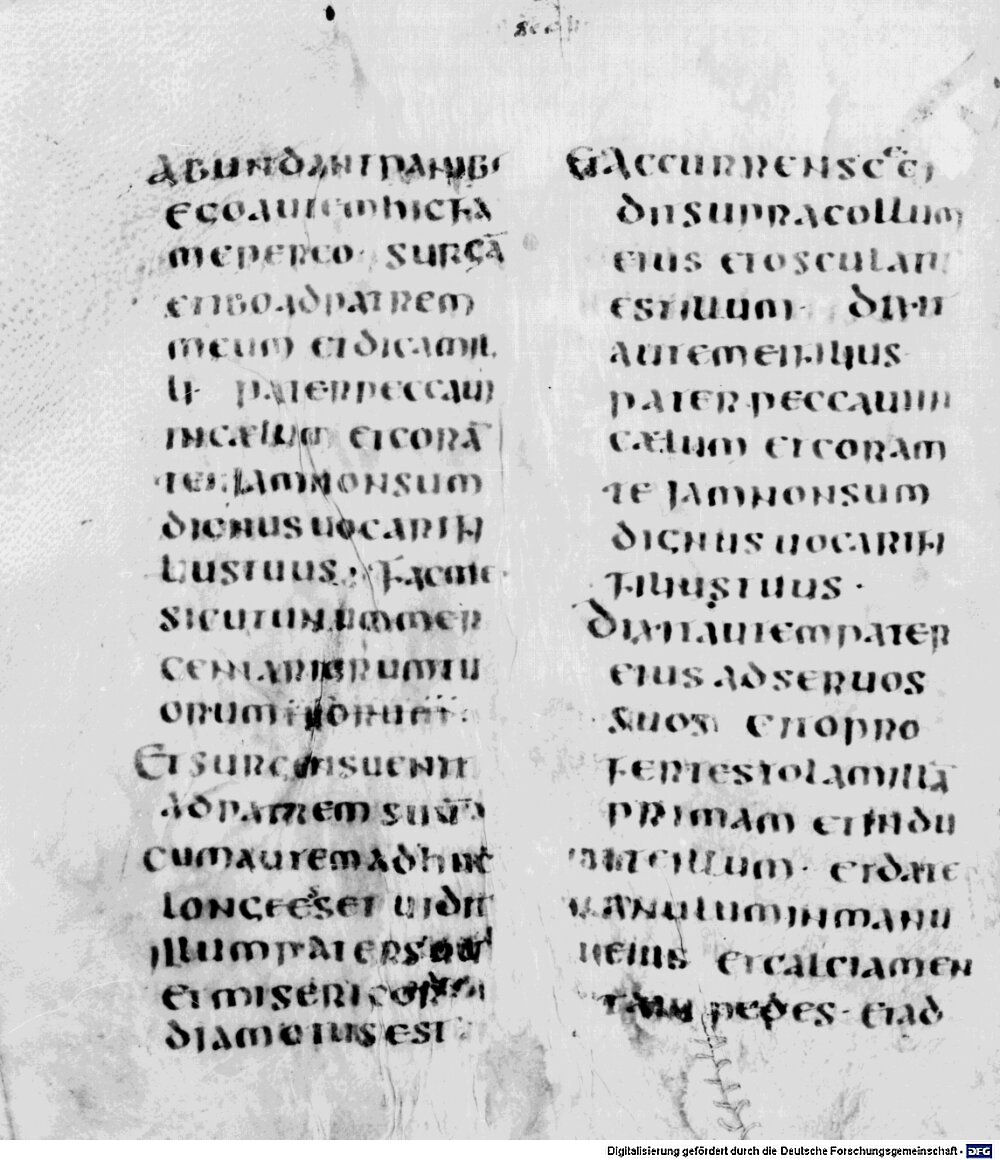 ABUNDANT PANIB·
EGO AUTEM HIC FA
ME PEREO · SURGĀ
ET IBO AD PATREM
MEUM ET DICAM IL
LI PATER PECCAUI
IN CÆLUM ET CORĀ
TE· IAM NON SUM
DIGNUS UOCARI FI
LIUS TUUS · FAC ME
SICUT UNUM MER
CENNARIORUM TU
ORUM
ET SURGENS UENIT
AD PATREM SUŪ
CUM AUTEM ADHUC
LONGE ESSET UIDIT
ILLUM PATER
ET MISERICOR
DIA MOTUS EST
ET ACCURRENS CECI
DIT SUPRA COLLUM
EIUS ET OSCULATUS
EST ILLUM · DIXIT
AUTEM EI FILIUS
PATER PECCAUI IN
CÆLUM ET CORAM
TE IAM NON SUM
DIGNUS UOCARI FI
FILIUS TUUS ·
DIXIT AUTEM PATER
EIUS AD SERUOS
SUOS CITO PRO
FERTE STOLAM ILLĀ
PRIMAM ET INDU
ITE ILLUM · ET DATE
ANULUM IN MANU
EIUS ET CALCIAMEN
TA IN PEDES · ET AD
Digitalisierung gefördert durch die Deutsche Forschungsgemeinschaft - DFG